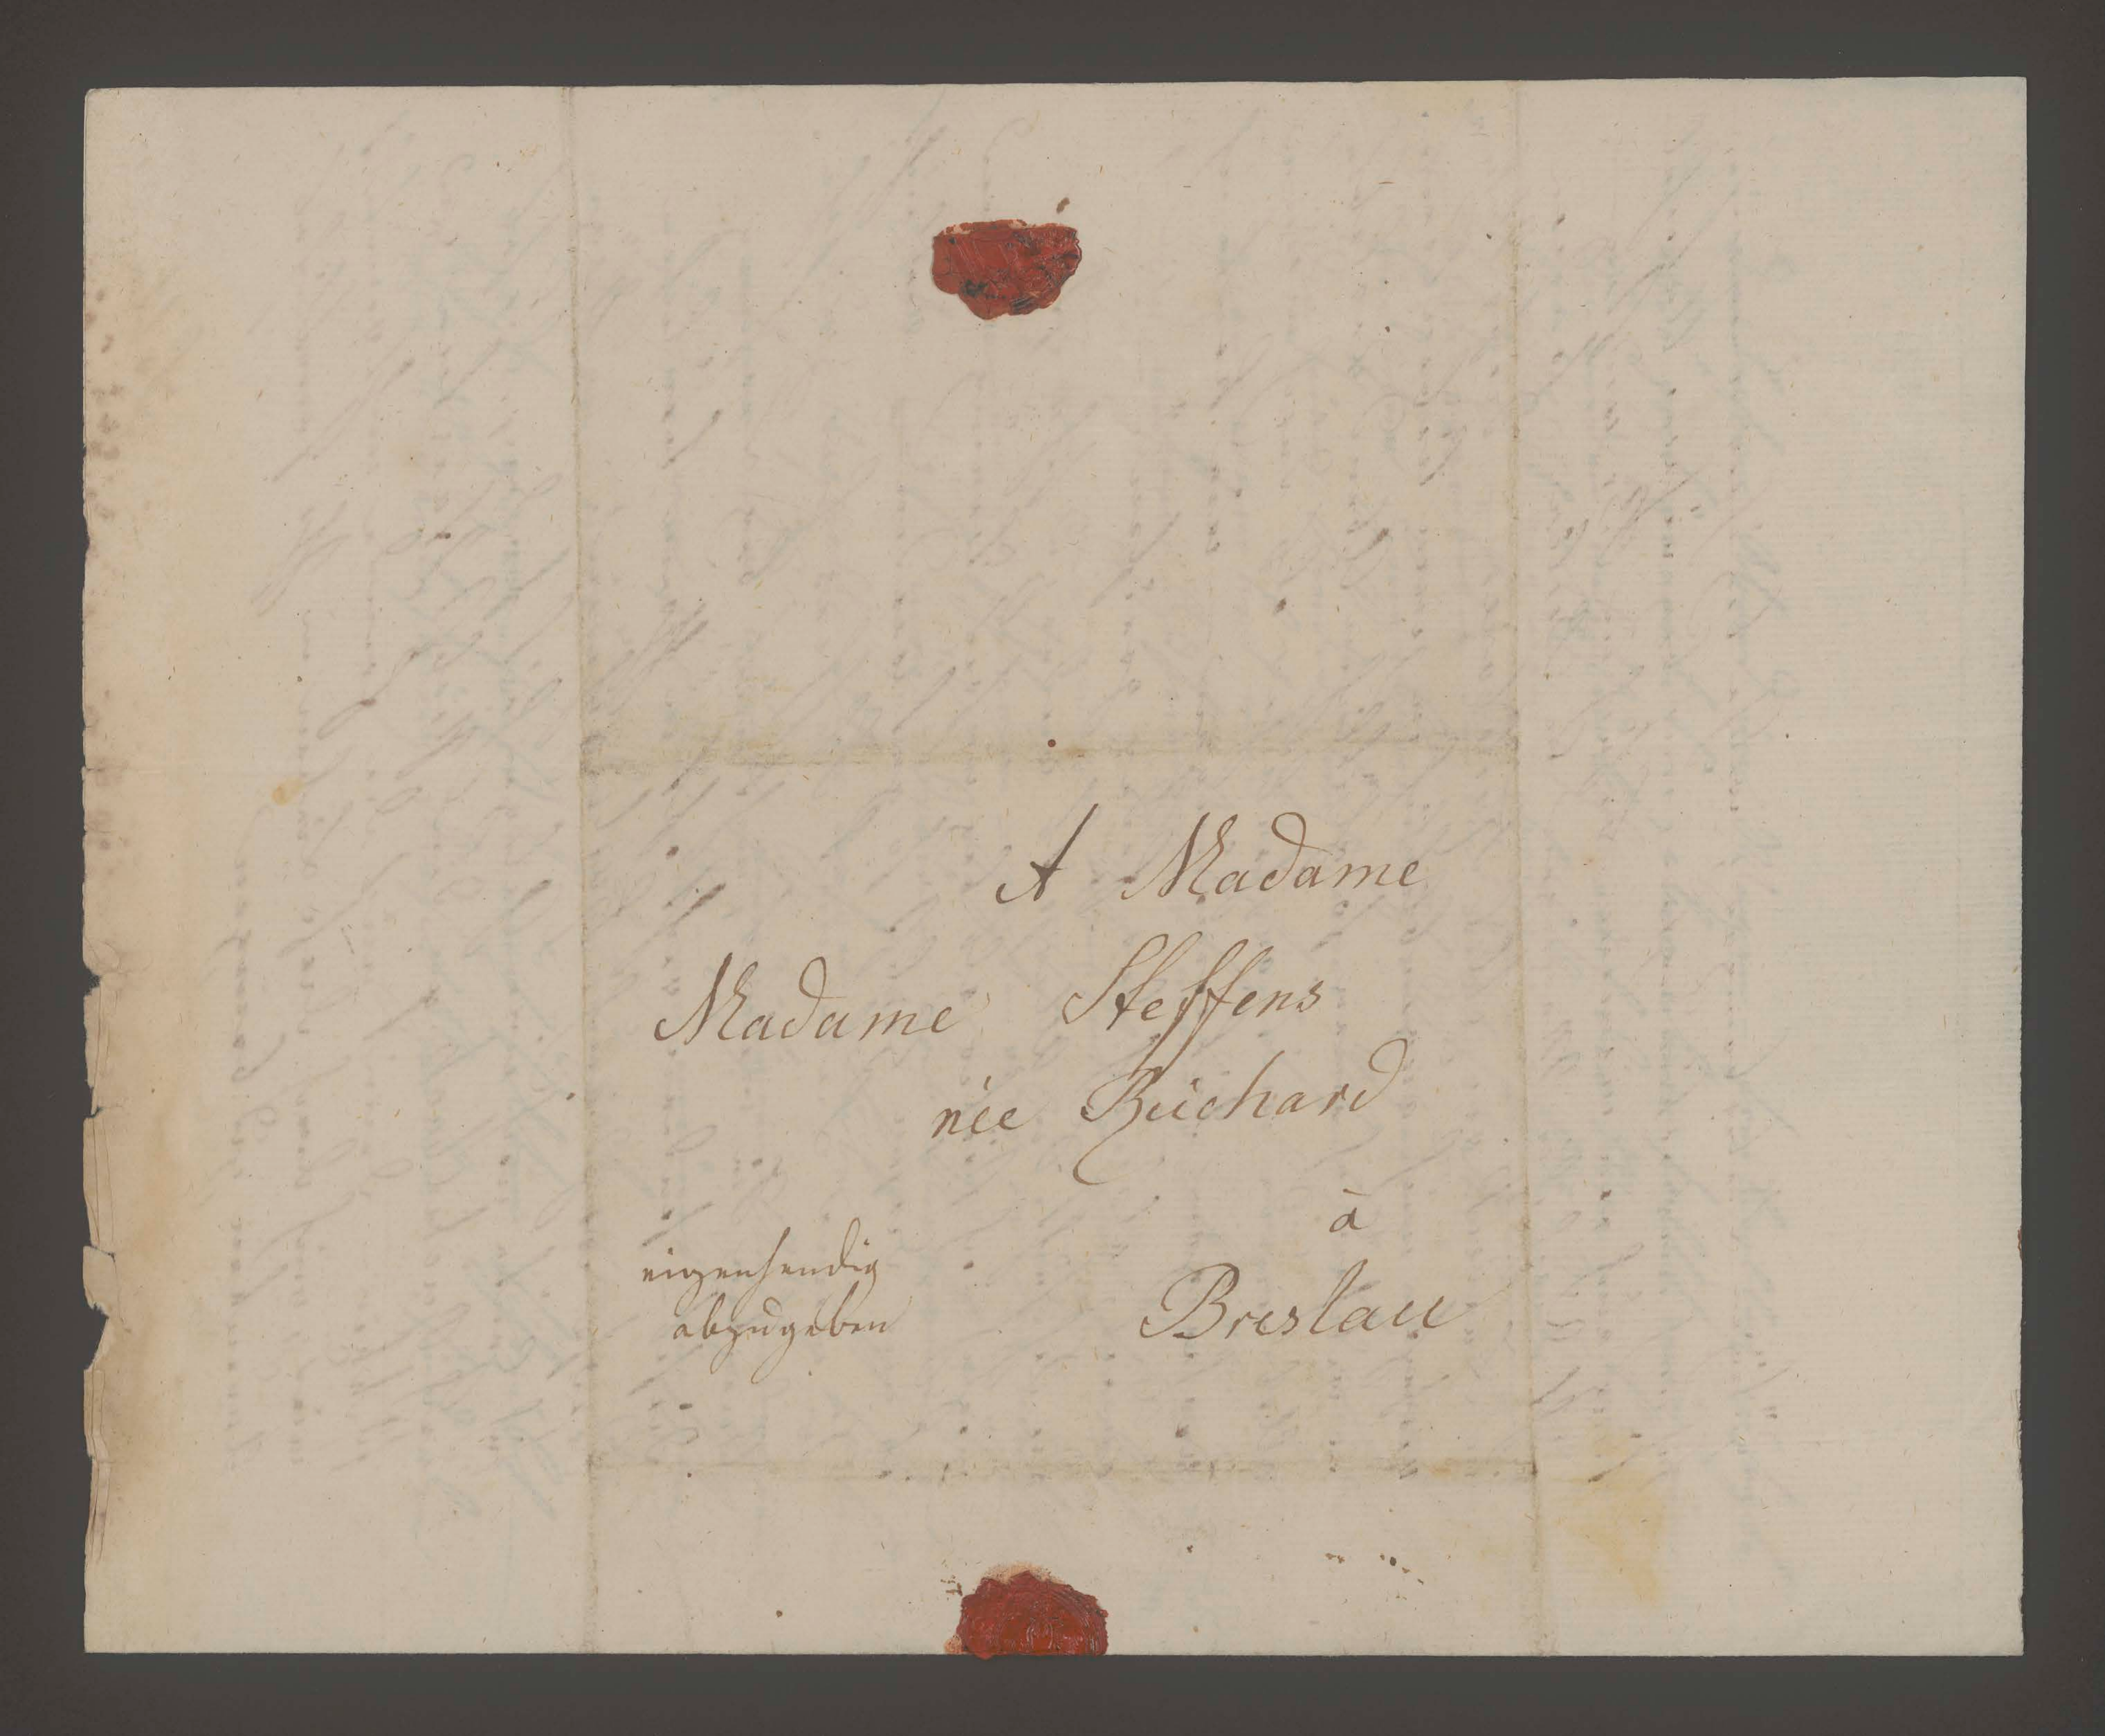 A Madame
Madame Steffens
née Büchard
à
Breslau
eigenhendig
abzugeben